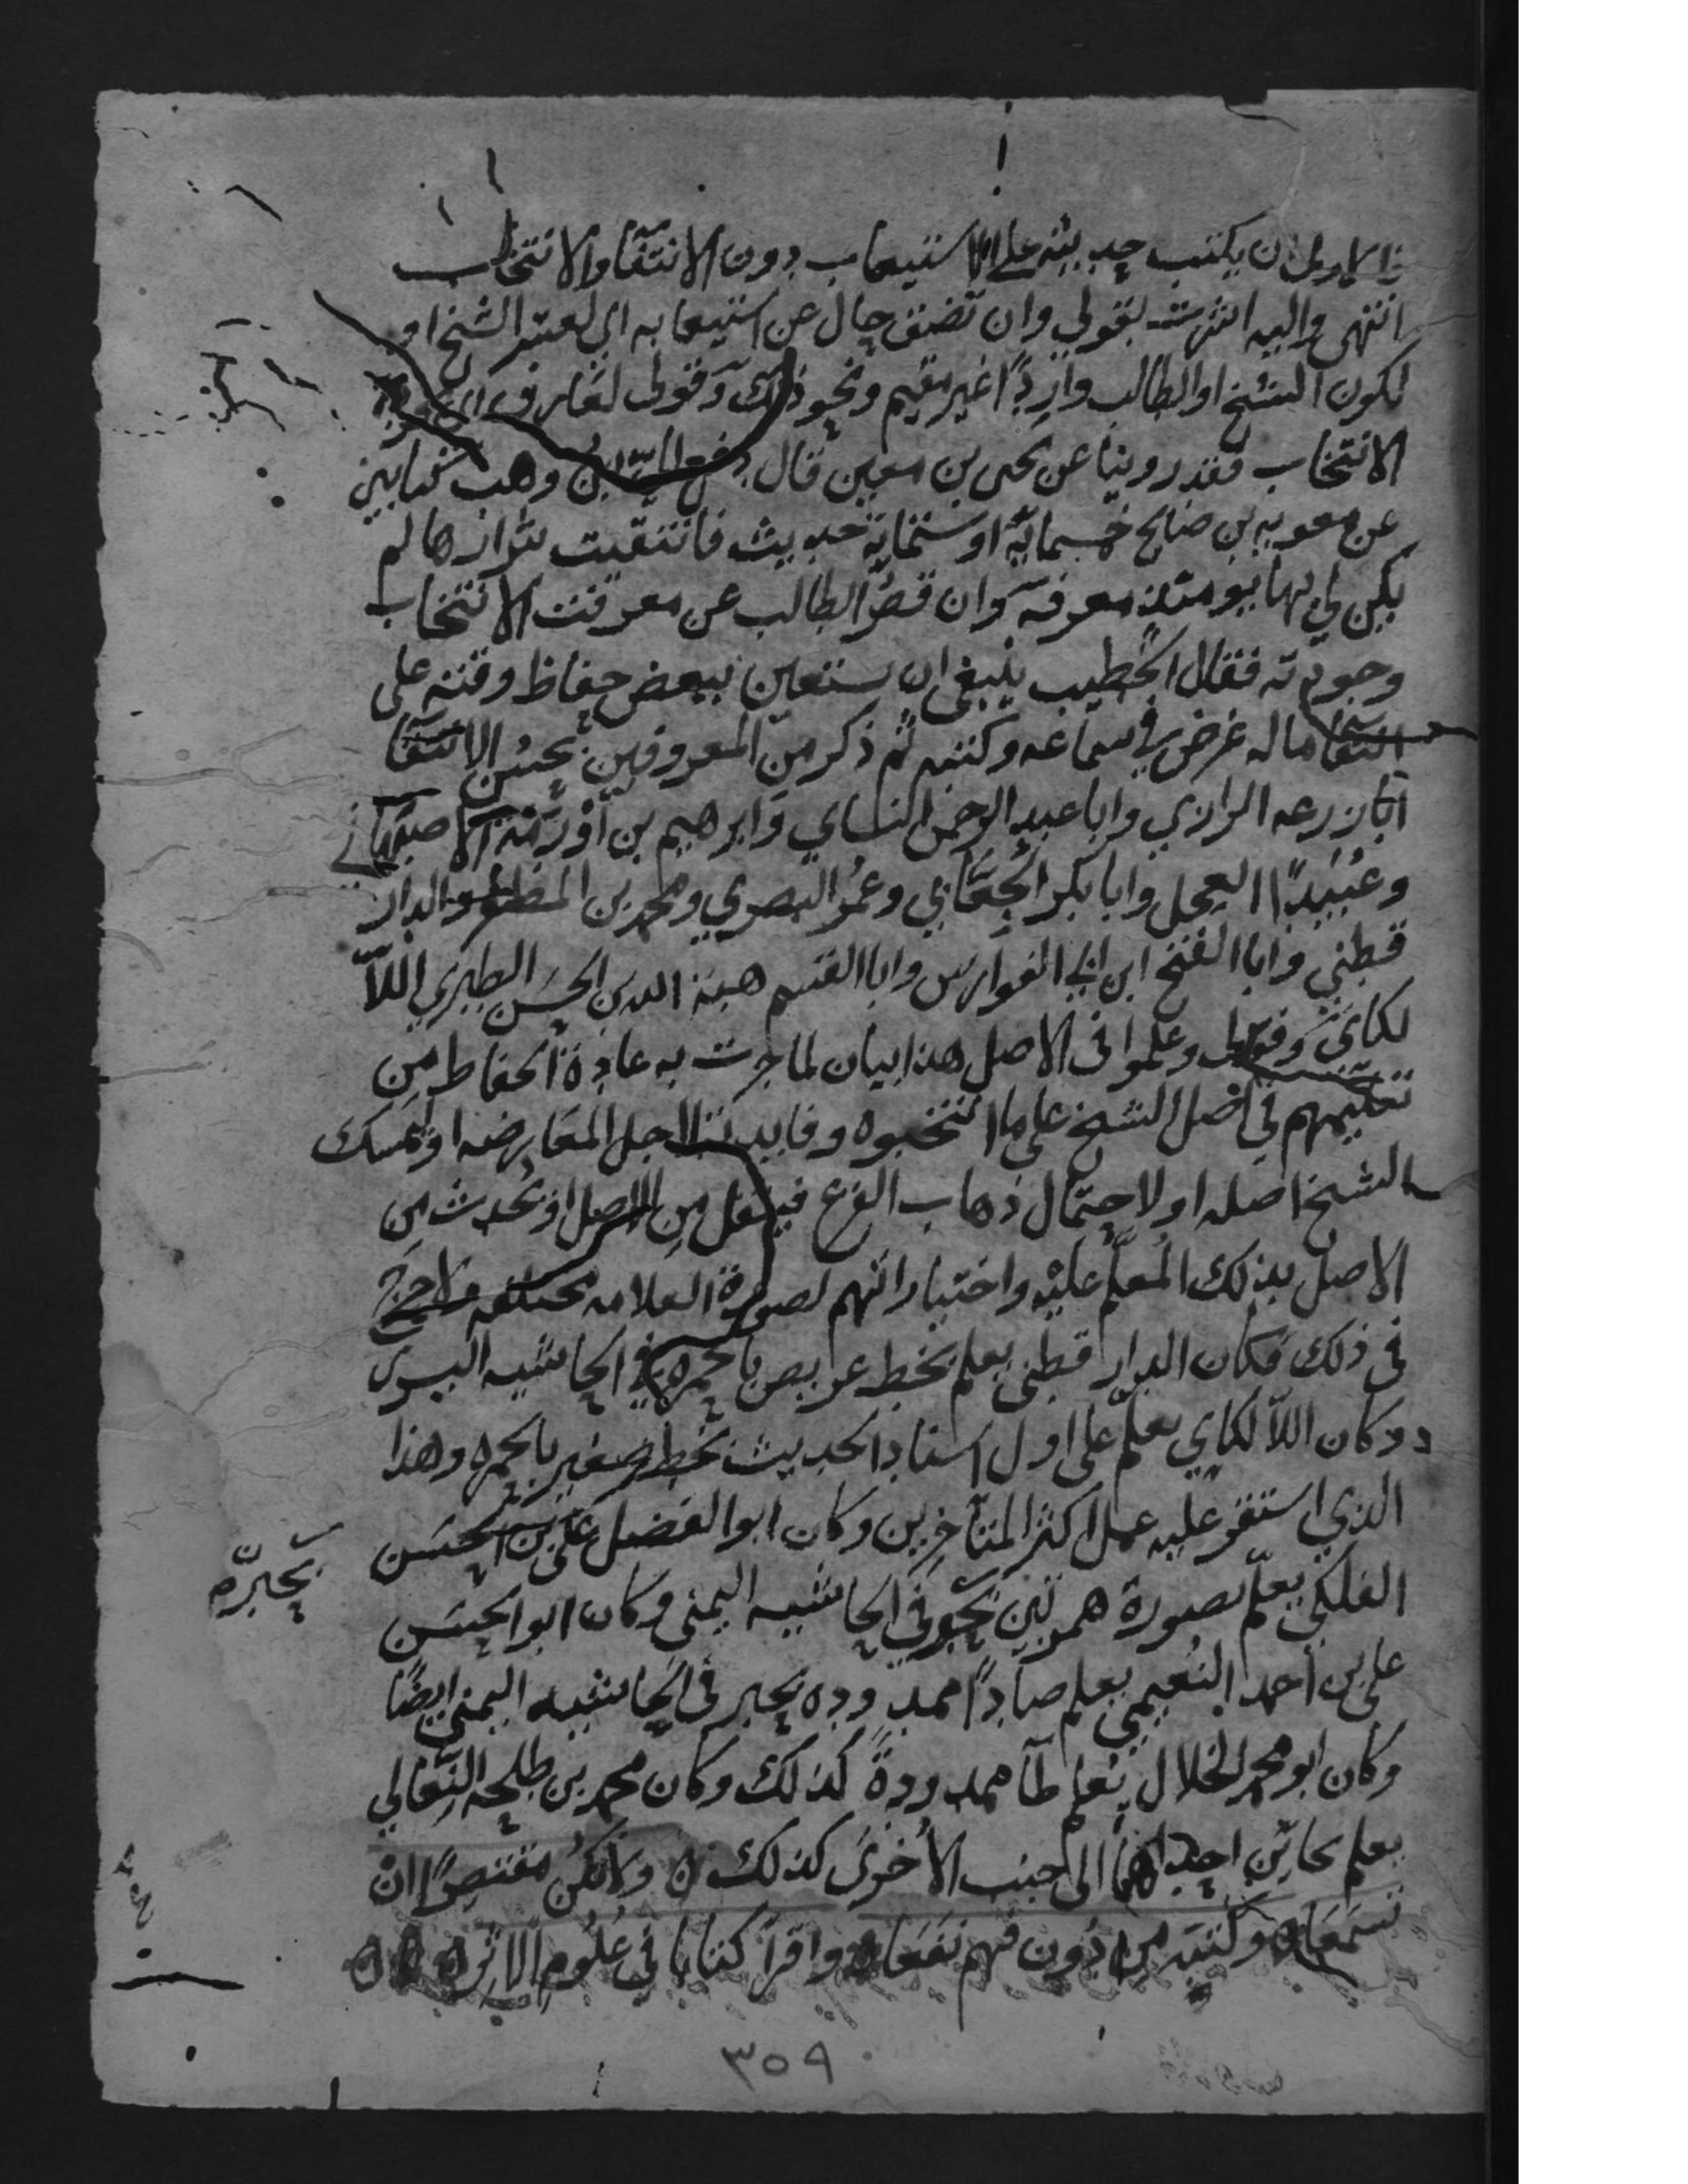 فالاولى ان يكتب حديثه على الاستيعاب دون الانتقا والانتخاب
انتهى واليه اشرت بقولى وان تضق حال عن استيعابه اى لعسر الشيخ او
لكون الشيخ او الطالب واردًا غير مقيم ونحو ذلك وقولى لعارف اى بجودة
الانتخاب فقد روينا عن يحيى بن معين قال دفع الىّ ابنُ وهب كتابين
عن معويه بن صالح خمسمائة او ستمائة حديث فانتقيت شرارها لم
يكن لي بها يومئذ معرفة وان قصُر الطالب عن معرفت الانتخاب
وجودته فقال الخطيب ينبغي ان يستعين ببعض حفاظ وقته على
انتقا ماله غرض في سماعه وكتبه ثم ذكر من المعروفين بحسن الانتقا
ابا زرعه الرازي وابا عبد الرحمن النساي وابرهيم بن اورمة الاصبهاني
وعُبَيدًا العجل وابا بكر الجعَّابي وعمُر البصري ومحمد بن المظفر والدار
قطني وابا الفتح ابن ابي الفوارس وابا القسم هبة الله بن الحسن الطبري اللاّ
لكاى وقولى وعلموا فى الاصل هذا بيان لما جرت به عادة الحفاظ من
تعليمهم في اصل الشيخ على ما انتخبوه وفايدته لاجل المعارضه او ليمسك
الشيخ اصله او لاحتمال ذهاب الفرع فينقل من الاصل او يحدث من
الاصل بذلك المعلّم عليه واختياراتهم لصورة العلامه مختلفه ولا حرج
فى ذلك فكان الدار قطنى يعلم بخط عريض بالحمره في الحاشيه اليسرى
وكان اللاّ لكاي يعلّم على اول اسناد الحديث بخط صغير بالحمره وهذا
الذي استقر عليه عمل اكثر المتأخرين وكان ابو الفضل على بن الحسن
الفلكي يعلّم بصورة همزتين بحبر في الحاشيه اليمنى وكان ابو الحسن
بحبره
على بن احمد النُعيمي يعلم صادًا ممدوده بحبر فى الحاشيه اليمنى ايضًا
وكان ابو محمد الخلال يُعلم طآ ممدودةً كذلك وكان محمد بن طلحه النِّعَالي
يعلم بحائين احداهما الى جنب الاُخرى كذلك ه ولا تكُن مقتصرًا ان
تسمعَا ه وكتبه من دُون فهم نَفَعَا ه واقرأ كتابا في عُلُوم الاثر ه ه ه
٣٥٩